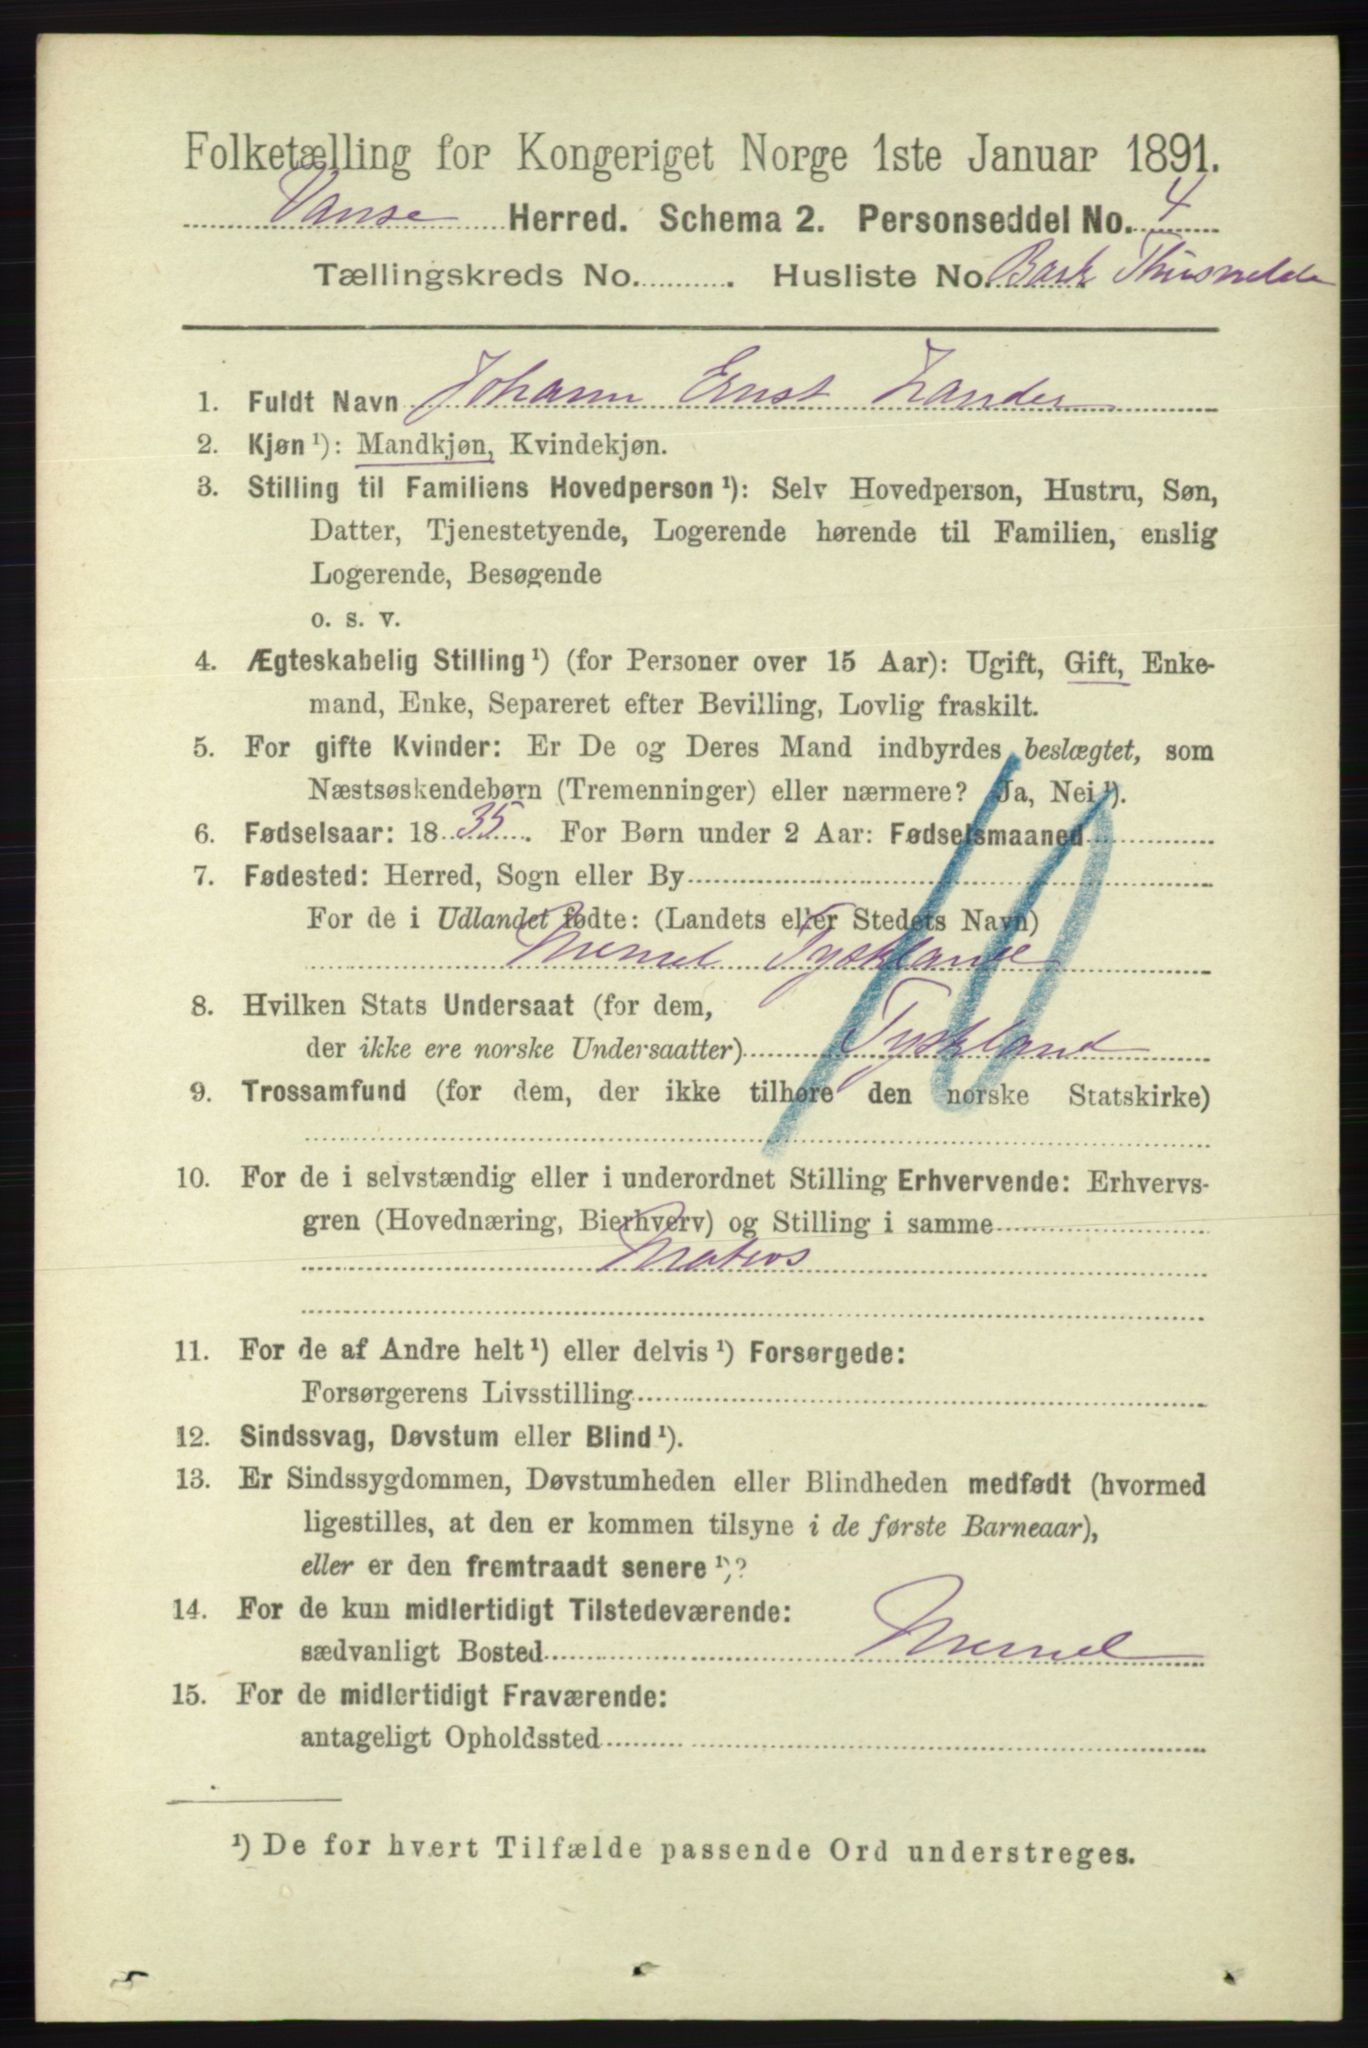 Folketælling for Kongeriget Norge 1ste Januar 1891.
Vanse Herred. Schema 2. Personseddel No. 4
Tællingskreds No. . Husliste No. Bark Thusnelda
1. Fuldt Navn Johann Ernst Zander
2. Kjøn ¹): Mandkjøn, Kvindekjøn.
3. Stilling til Familiens Hovedperson ¹): Selv Hovedperson, Hustru, Søn,
Datter, Tjenestetyende, Logerende hørende til Familien, enslig
Logerende, Besøgende
o. s. v.
4. Ægteskabelig Stilling ¹) (for Personer over 15 Aar): Ugift, Gift, Enke-
mand, Enke, Separeret efter Bevilling, Lovlig fraskilt.
5. For gifte Kvinder: Er De og Deres Mand indbyrdes beslægtet, som
Næstsøskendebørn (Tremenninger) eller nærmere? Ja, Nei ¹).
6. Fødselsaar: 1835. For Børn under 2 Aar: Fødselsmaaned
7. Fødested: Herred, Sogn eller By
For de i Udlandet fødte: (Landets eller Stedets Navn)
Memel Tyskland
8. Hvilken Stats Undersaat (for dem,
der ikke ere norske Undersaatter) Tyskland
9. Trossamfund (for dem, der ikke tilhøre den norske Statskirke)
10. For de i selvstændig eller i underordnet Stilling Erhvervende: Erhvervs-
gren (Hovednæring, Bierhverv) og Stilling i samme
Matros
11. For de af Andre helt ¹) eller delvis ¹) Forsørgede:
Forsørgerens Livsstilling
12. Sindssvag, Døvstum eller Blind ¹).
13. Er Sindssygdommen, Døvstumheden eller Blindheden medfødt (hvormed
ligestilles, at den er kommen tilsyne i de første Barneaar),
eller er den fremtraadt senere ¹)?
14. For de kun midlertidigt Tilstedeværende:
sædvanligt Bosted Memel
15. For de midlertidigt Fraværende:
antageligt Opholdssted
¹) De for hvert Tilfælde passende Ord understreges.